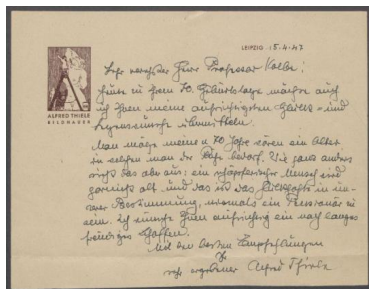 LEIPZIG 15.4.47
ALFRED THIELE
BILDHAUER
Sehr verehrter Herr Professor Kolbe!
Heute zu Ihrem 70. Geburtstage möchte auch
ich Ihnen meine aufrichtigsten Glück- und
Segenswünsche übermitteln.
Man möge meinen 70 Jahre wären ein Alter
in welchem man der Ruhe bedarf. Wie ganz anders
sieht das aber aus; ein schöpferischer Mensch wird
garnicht alt und das ist das in un-
serer Bestimmung, niemals ein Pensionär zu
sein. Ich wünsche Ihnen aufrichtig ein noch langes
freudiges Schaffen.
Mit den besten Empfehlungen
Ihr
sehr ergebener Alfred Thiele